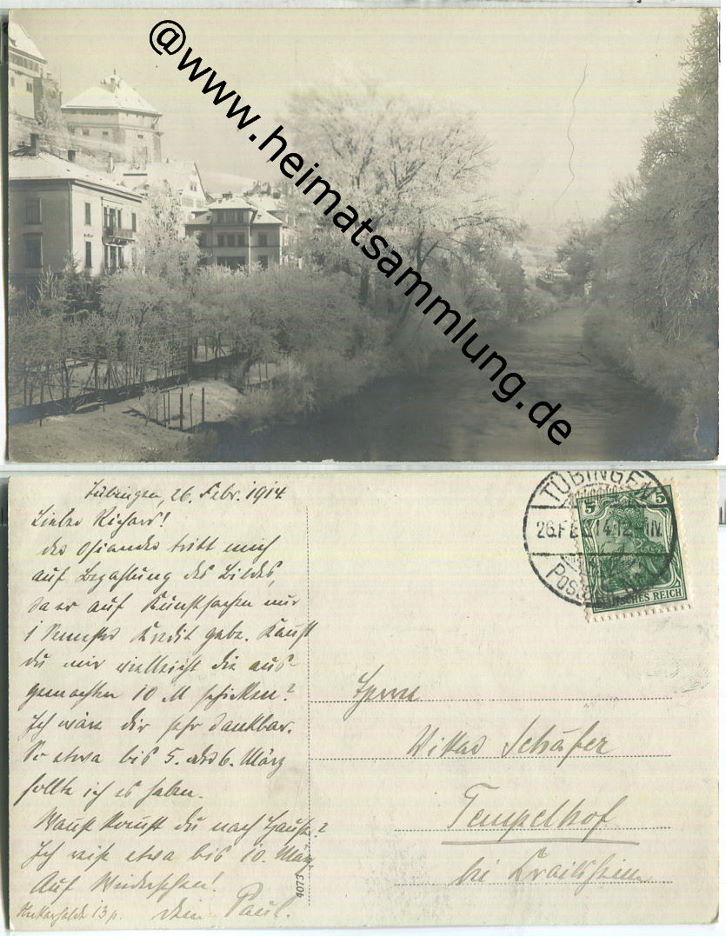 @www.heimatsammlung.de
TÜBINGEN
26.FEB 14.12-1N.
5 5
DEUTSCHES REICH
Tübingen, 26. Febr. 1914
Lieber Richard!
der Osiander tritt mich
auf Bezahlung des Bildes,
da er auf Kunstsachen nur
1 Semester Kredit gebe. Kannst
du mir vielleicht die aus-
gemachten 10 M schicken?
Ich wäre dir sehr dankbar.
So etwa bis 5. oder 6. März
sollte ich es haben.
Wann kommst du nach Hause?
Ich reise etwa bis 10. März.
Auf Wiedersehen!
dein Paul.
Neckarhalde 13
4073
Herrn
Schäfer
Tempelhof
bei Crailsheim